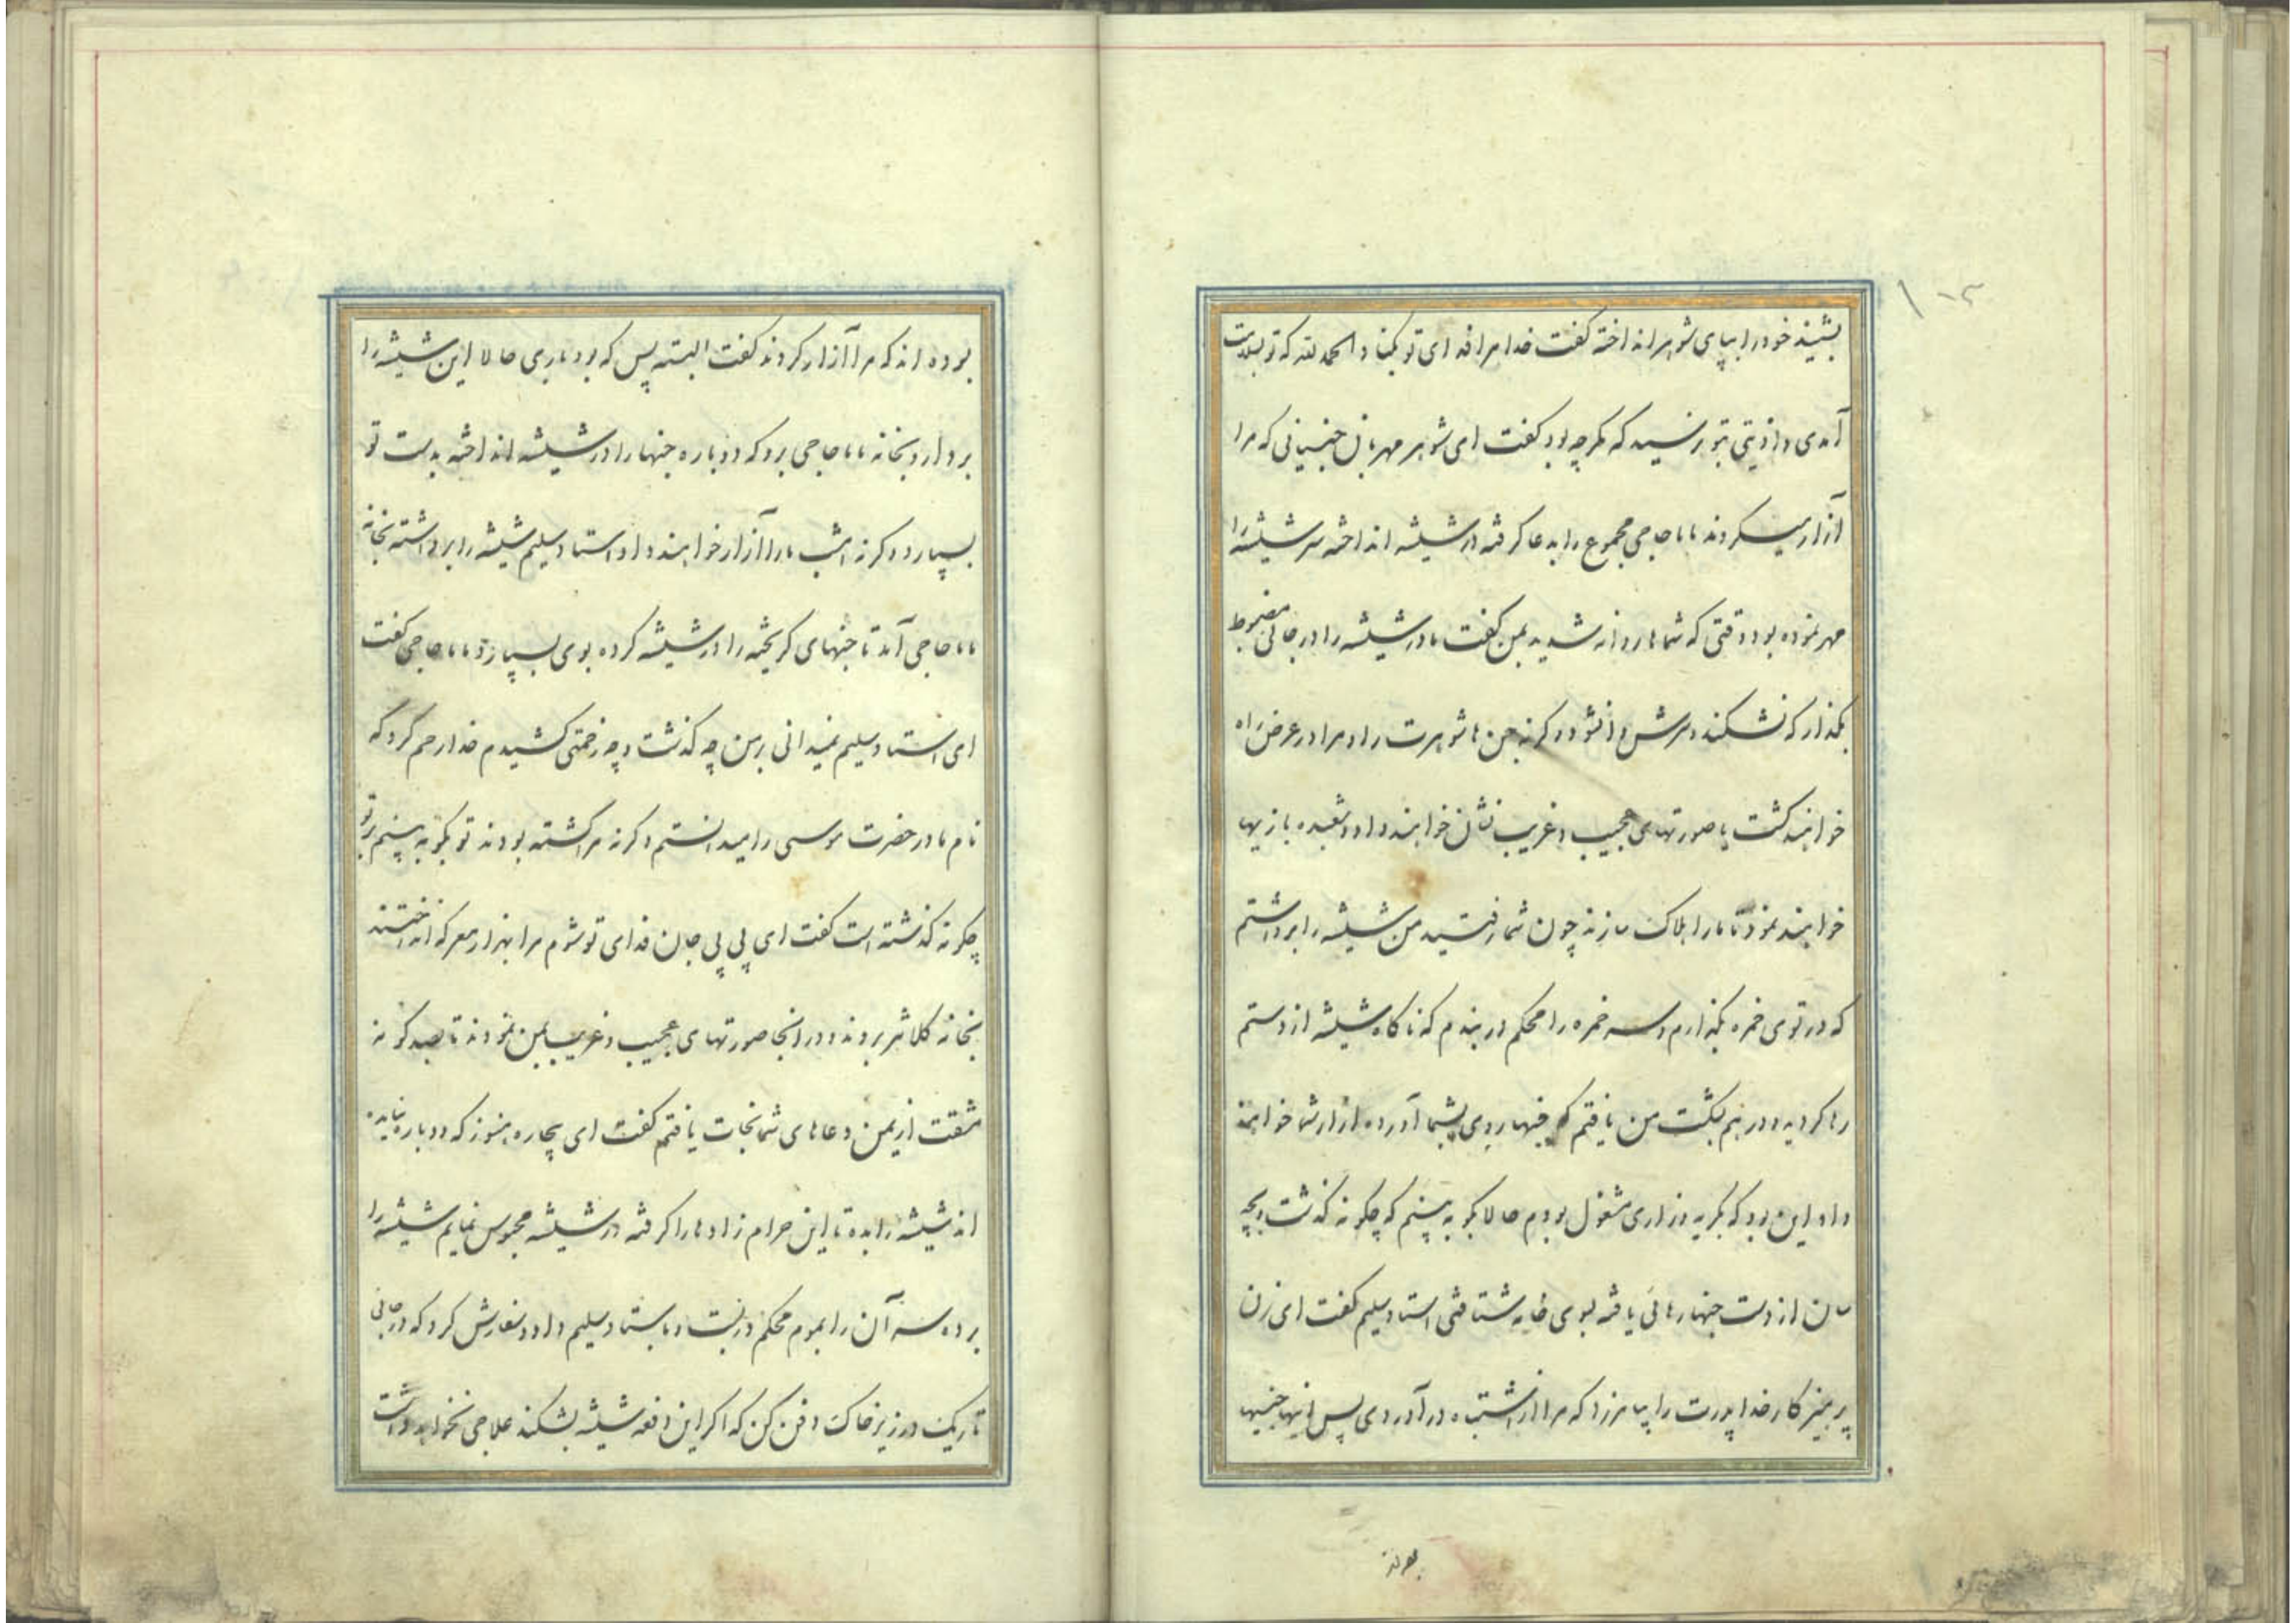 بشنید خود را بپای شوهر انداخته گفت خدا مرا فدای تو کند و الحمد لله که تو بسلامت
آمدی و اذیتی بتو نرسید که مگر چه بود گفت ای شوهر مهربان جنیانی که مرا
آزار میکردند بابا حاجی مجموع را بدعا گرفته در شیشه انداخته سر شیشه را
مهر نموده بود وقتی که شماها روانه شدید بمن گفت مادر شیشه را در جائی مضبوط
بگذار که نشکند و سرش وا نشود و گرنه جن ها شوهرت را و مرا در عرض راه
خواهند گشت یا صورتهای عجیب و غریب نشان خواهند داد و شعبده بازیها
خواهند نمود تا ما را هلاک سازند چون شما رفتید من شیشه را برداشتم
که در توی خمره بگذارم و سر خمره را محکم در بندم که ناگاه شیشه از دستم
رها گردید و در هم شکست من یافتم که جنها روی بشما آورده آزار شما خواهند
داد این بود که بگریه و زاری مشغول بودم حالا بگو به بینم که چگونه گذشت و بچه
سان از دست جنها رهائی یافته بسوی خانه شتافتی استاد سلیم گفت ای زن
پرهیزکار خدا پدرت را بیامرزد که مرا از اشتباه در آوردی پس اینها جنیها
بوده اند
بوده اند که مرا آزار کردند گفت البته پس که بود باری حالا این شیشه را
بردار و بخانه بابا حاجی برو که دوباره جنها را در شیشه انداخته بدست تو
بسپارد و گرنه امشب ما را آزار خواهند داد استاد سلیم شیشه را برداشته بخانه
بابا حاجی آمد تا جنهای گریخته را در شیشه کرده بوی بسپارد بابا حاجی گفت
ای استاد سلیم نمیدانی بر من چه گذشت و چه زحمتی کشیدم خدا رحم کرد که
نام مادر حضرت موسی را میدانستم و گرنه مرا کشته بودند تو بگو به بینم بر تو
چگونه گذشته است گفت ای پی پی جان فدای تو شوم مرا بهزار معرکه انداختند
بخانه کلانتر بردند و در آنجا صورتهای عجیب و غریب بمن نمودند تا بصد گونه
مشقت از یمن دعاهای شما نجات یافتم گفت ای بیچاره هنوز که دوباره نیامده
اند شیشه را بده تا این حرام زادها را گرفته در شیشه محبوس نمایم شیشه را
برده سر آن را بموم محکم در بست و باستاد سلیم داد و سفارش کرد که در جائی
تاریک در زیر خاک دفن کن که اگر این دفعه شیشه بشکند علاجی نخواهد داشت